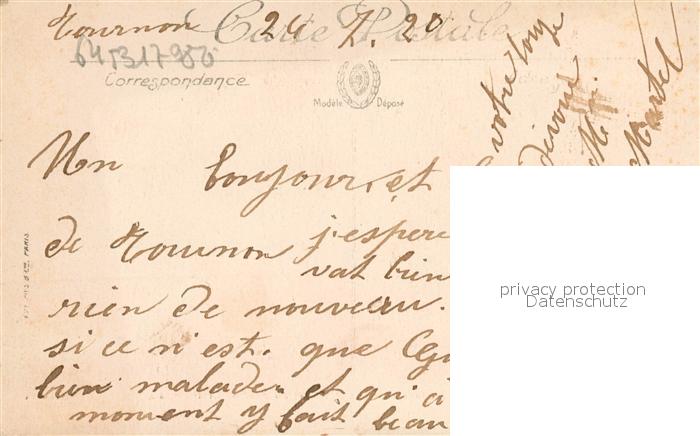 Tournon 24 7. 20
Carte Postale
64531798
Correspondance
Modèle Déposé
Un bonjour, et
de Tournon j'espere
vat bien
rien de nouveau.
si ce n'est. que
bien malade. et qu'a
moment y fait beau
votre tout
dévoué
Martel
privacy protection
Datenschutz